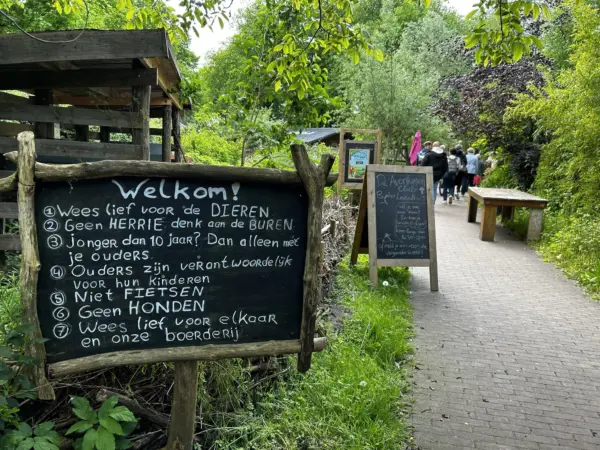 Welkom!
① Wees lief voor de DIEREN
② Geen HERRIE denk aan de BUREN
③ jonger dan 10 jaar? Dan alleen met
je ouders.
④ Ouders zijn verantwoordelijk
voor hun kinderen
⑤ Niet FIETSEN
⑥ Geen HONDEN
⑦ Wees lief voor elkaar
en onze boerderij